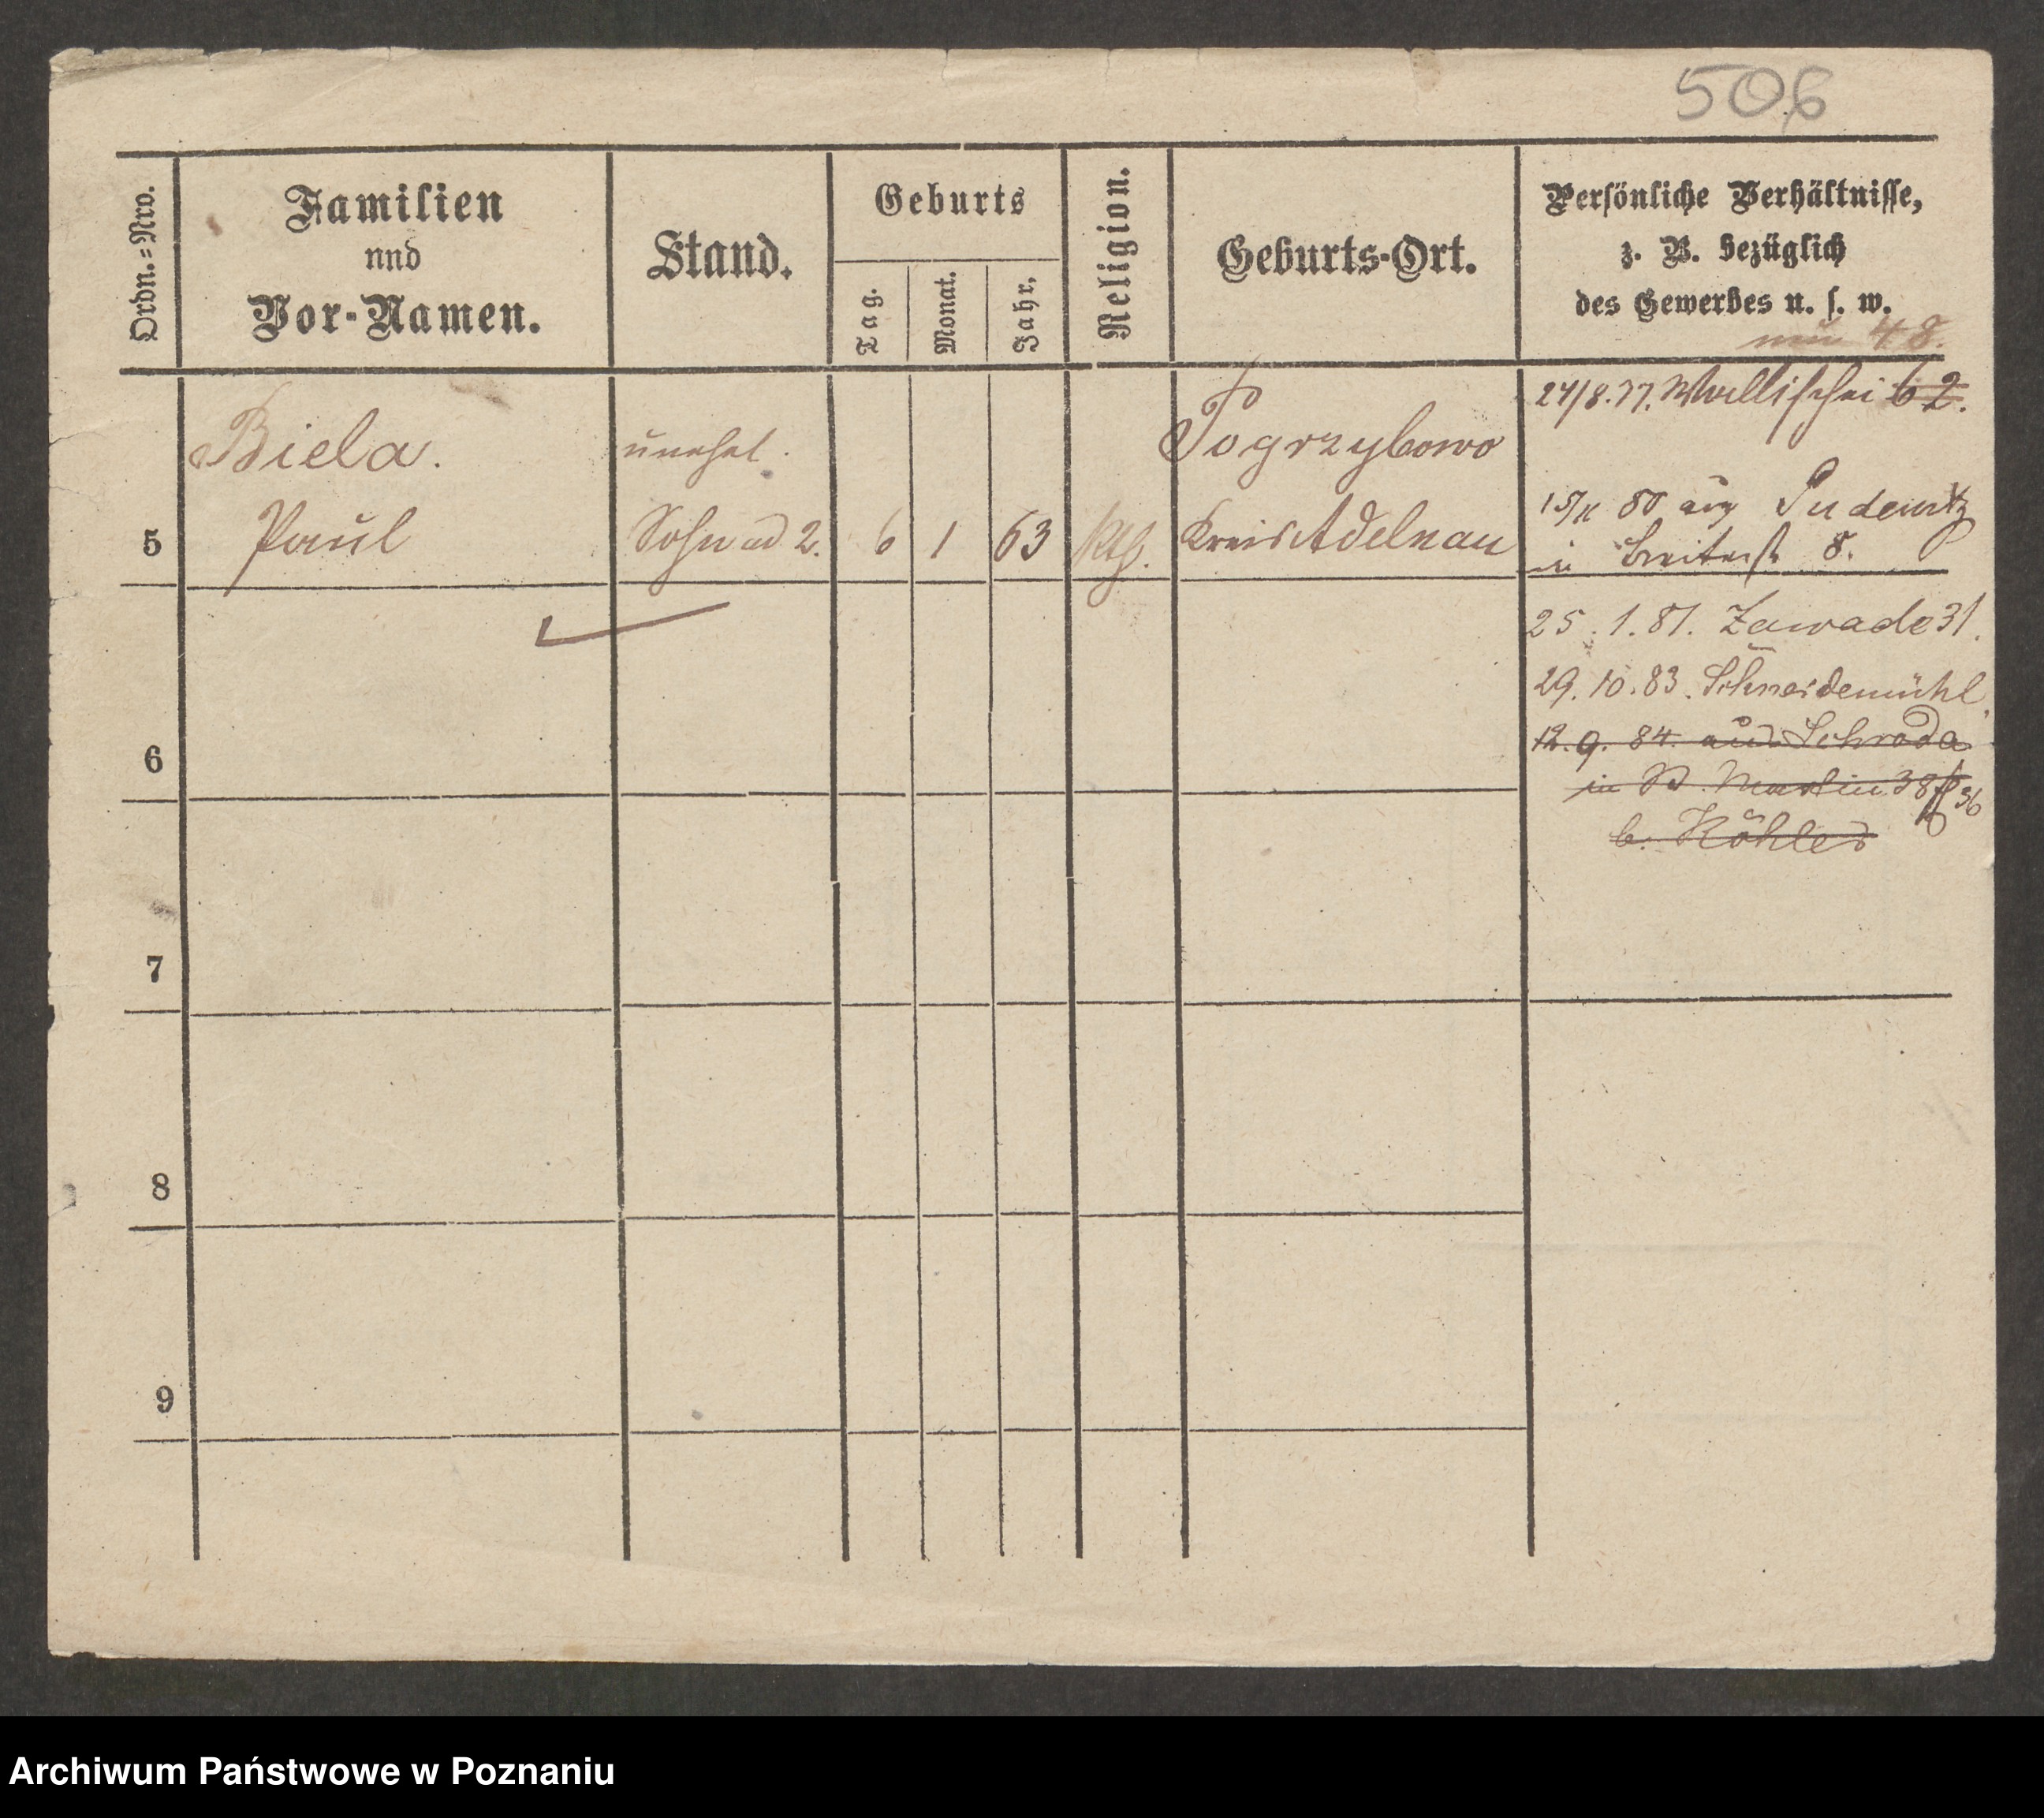 506
Ordn.=Nro.
Familien
und
Vor-Namen.
Stand.
Geburts
Tag.
Monat.
Jahr.
Religion.
Geburts-Ort.
Persönliche Verhältnisse,
z. B. bezüglich
des Gewerbes u. s. w.
nun 48.
5
Biela.
Paul
unehel.
Sohn ad 2.
6
1
63
kth.
Pogrzybowo
Kreis Adelnau
24/8.77. Wallischei 62.
15/11 80 aus Pudewitz
in Breitestr 8.
25.1.81. Zawade 31.
29.10.83. Schneidemühl.
12.9.84. aus Schroda
in St. Martin 38 36
b. Köhler
6
7
8
9
Archiwum Państwowe w Poznaniu